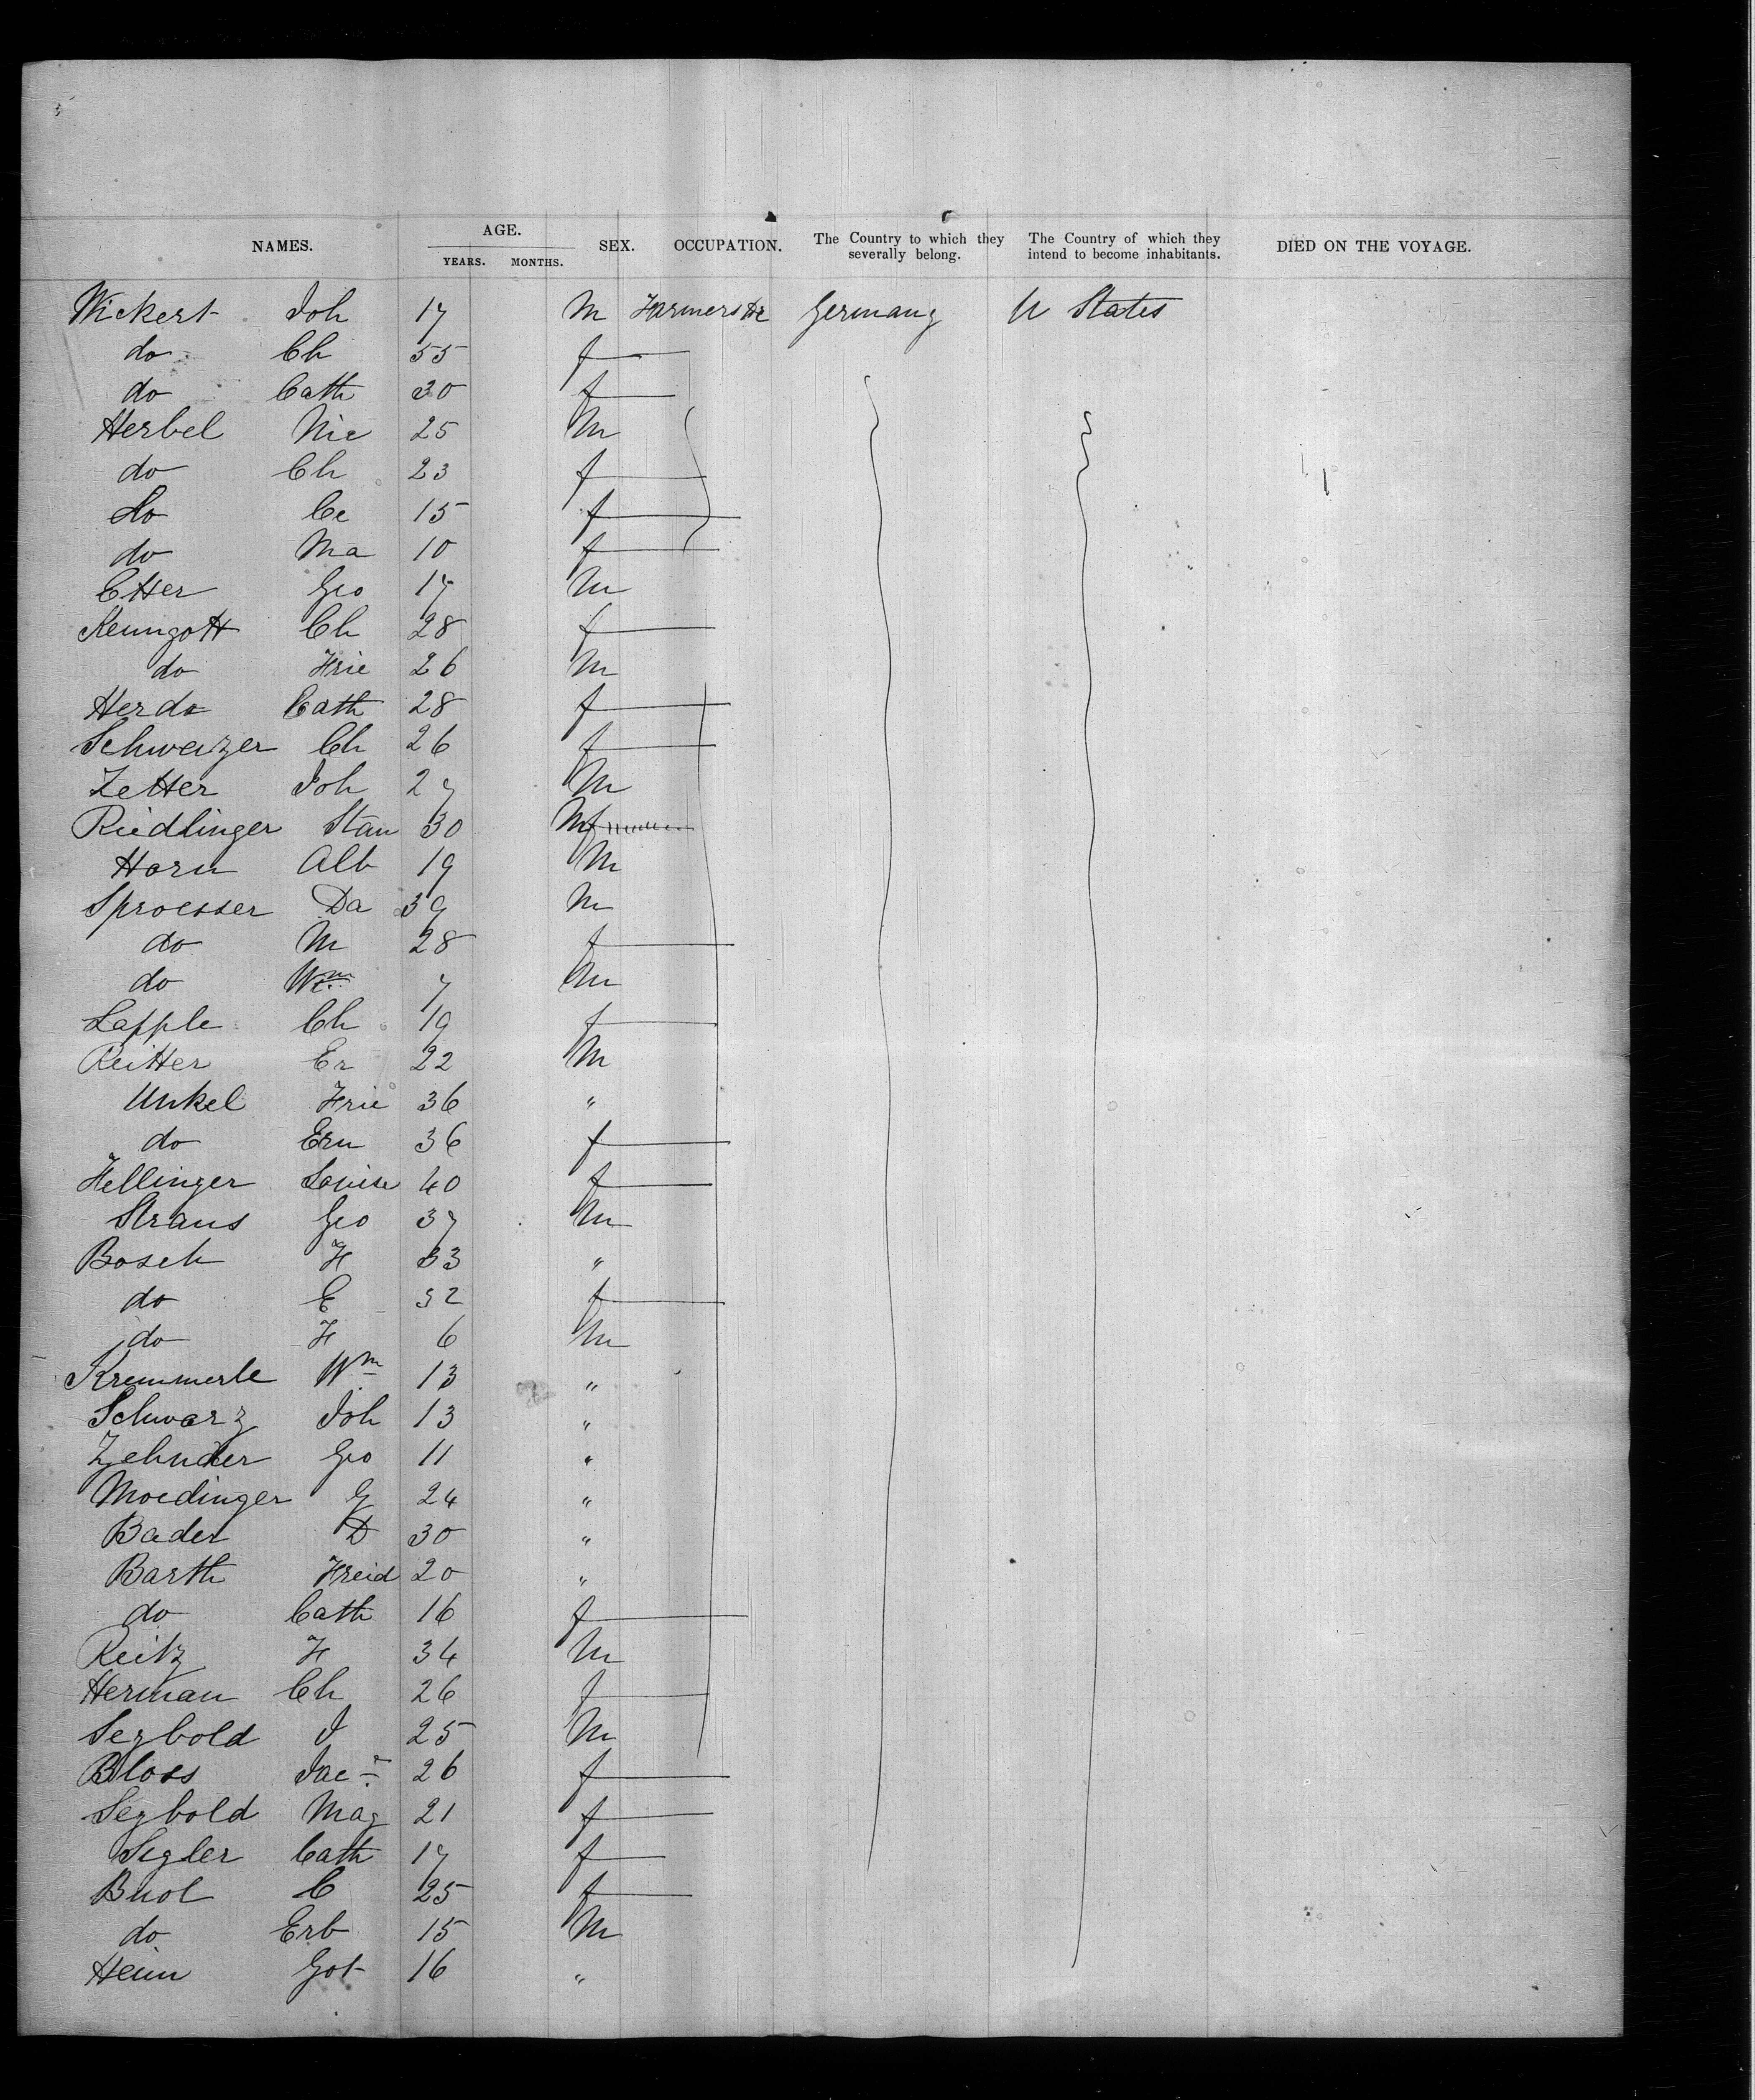 NAMES. AGE. YEARS. MONTHS. SEX. OCCUPATION. The Country to which they severally belong. The Country of which they intend to become inhabitants. DIED ON THE VOYAGE.
Wickert Joh 17 M Farmers &c Germany U States
do Ch 55 f
do Cath 30 f
Herbel Nic 25 M
do Ch 23 f
do Ce 15 f
do Ma 10 f
Etter Geo 17 M
Kenngott Ch 28 f
do Frie 26 M
Herdo Cath 28 f
Schweizer Ch 26 f
Zetter Joh 27 M
Riedlinger Stan 30 M
Horn Alb 19 M
Sproesser Da 39 M
do M 28 f
do Wm 7 M
Lapple Ch 19 f
Reitter Er 22 M
Unkel Frie 36 "
do Ern 36 f
Hellinger Louise 40 f
Straus Geo 37 M
Bosch H 33 "
do E 32 f
do H 6 M
Kremmerle Wm 13 "
Schwarz Joh 13 "
Zehnder Geo 11 "
Moedinger G 24 "
Bader D 30 "
Barth Freid 20 "
do Cath 16 f
Reitz H 34 M
Herman Ch 26 f
Seybold J 25 M
Bloss Jac 26 f
Seybold Mag 21 f
Segler Cath 17 f
Buol C 25 f
do Erb 15 M
Heim Got 16 "